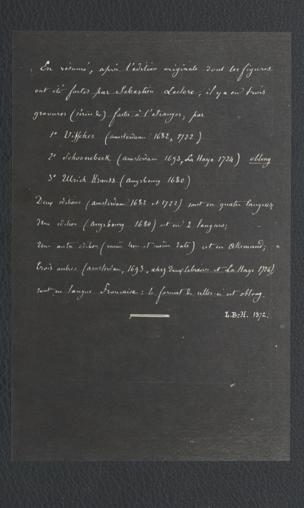 En résumé, après l'édition originale dont les figures
ont été faites par Sebastien Leclerc, il y a eu trois
gravures (séries de) faites à l'étranger, par
1° Visscher (Amsterdam 1682, 1722)
2° Schoonebeek (Amsterdam 1693, La Haye 1724) oblong
3° Ulrich Krauss (Augsbourg 1680)
Deux éditions (Amsterdam 1682 et 1722) sont en quatre langues;
Une édition (Augsbourg 1680) est en 2 langues;
Une autre édition (même lieu et même date) est en Allemand;
trois autres (Amsterdam, 1693, chez deux libraires et La Haye 1724)
sont en langue Française : le format de celles-ci est oblong.
L.B.-H. 1872.